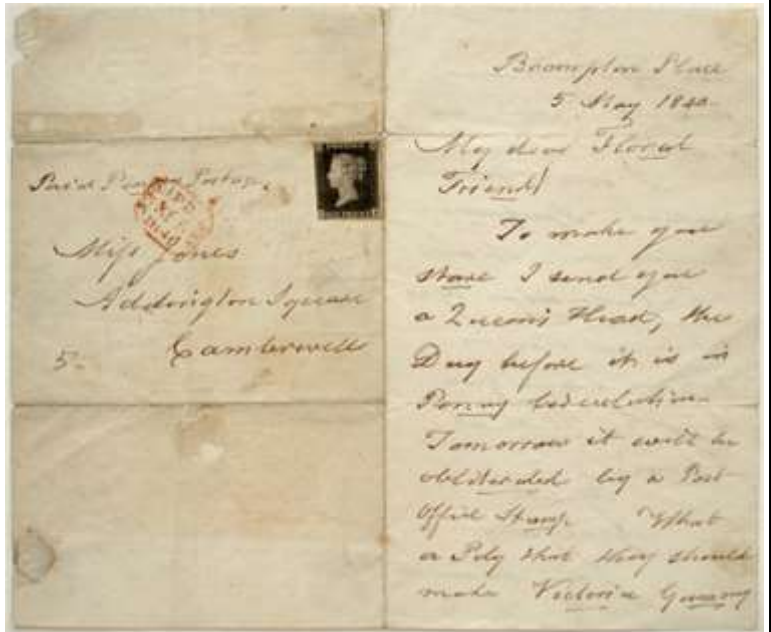 Paid Penny Postage
PAID
Miss Jones
Addington Square
Camberwell
5
Brompton Place
5 May 1840
My dear Floral
Friend
To make you
stare I send you
a Queen's Head, the
Day before it is in
Penny Circulation
Tomorrow it will be
obliterated by a Post
Office Stamp What
a Pity that they should
make Victoria